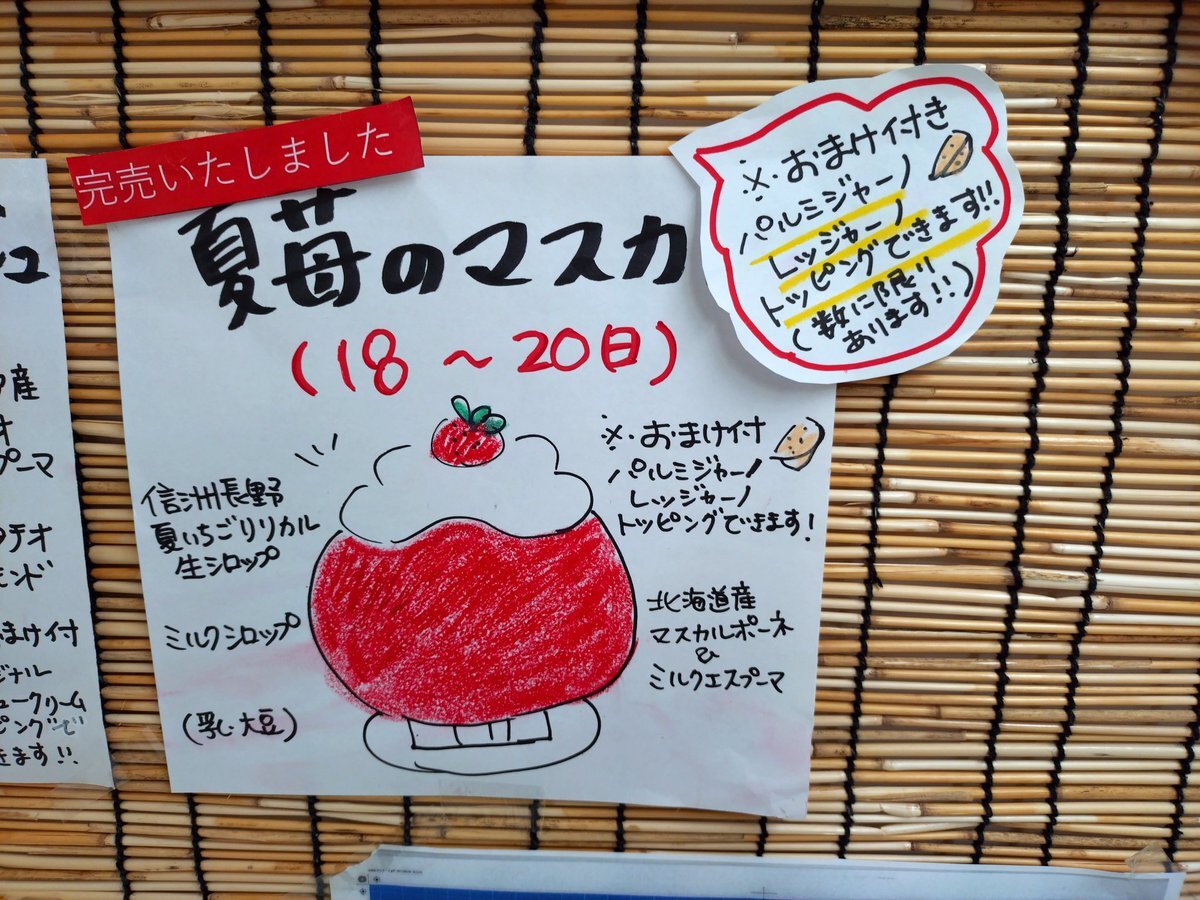 完売いたしました
夏苺のマスカ
(18～20日)
※おまけ付き
パルミジャーノ
レッジャーノ
トッピングできます!!
(数に限り
あります!!)
※おまけ付
パルミジャーノ
レッジャーノ
トッピングできます!
信州長野
夏いちごリリカル
生シロップ
ミルクシロップ
(乳・大豆)
北海道産
マスカルポーネ
&
ミルクエスプーマ
産
オ
プーマ
チオ
モンド
まけ付
ジナル
ュークリーム
ピングで
きます!!